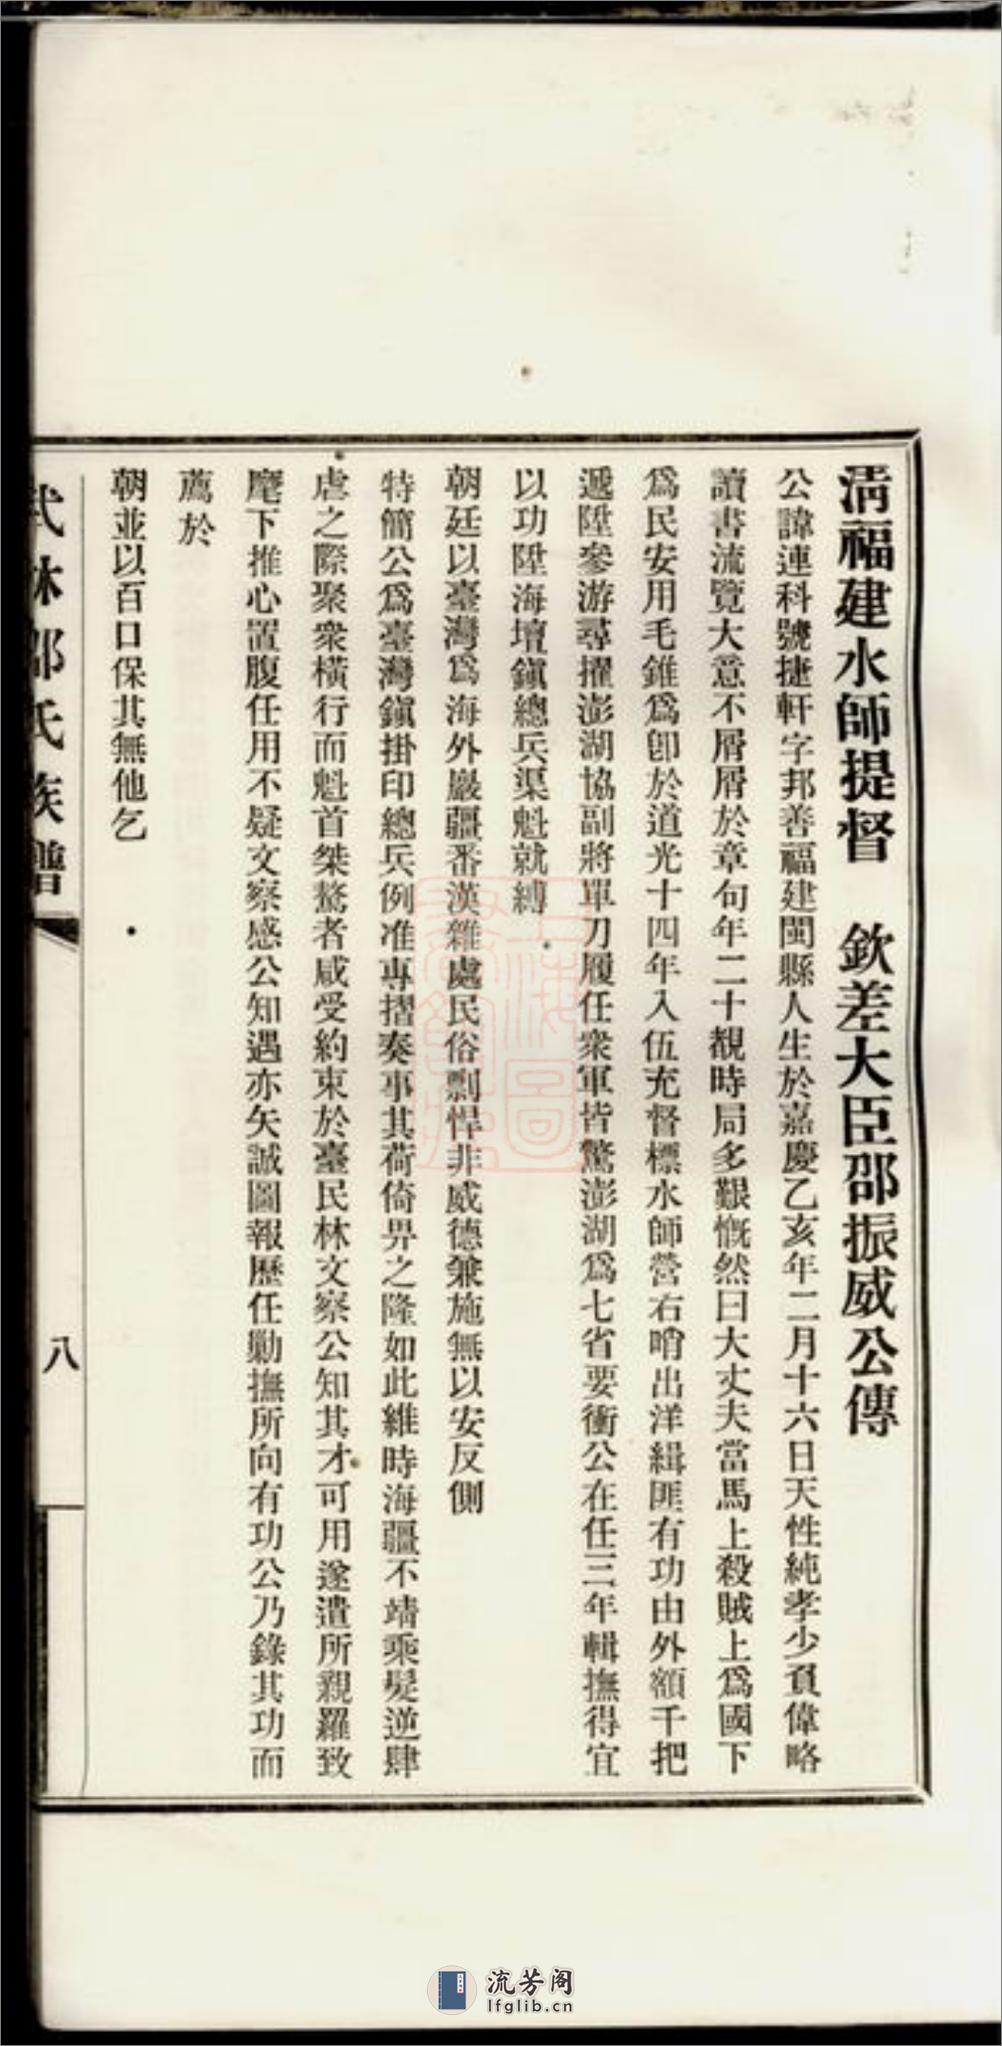 清福建水師提督　欽差大臣邵振威公傳
公諱連科號捷軒字邦善福建閩縣人生於嘉慶乙亥年二月十六日天性純孝少負偉略
讀書流覽大意不屑屑於章句年二十覩時局多艱慨然曰大丈夫當馬上殺賊上爲國下
爲民安用毛錐爲卽於道光十四年入伍充督標水師營右哨出洋緝匪有功由外額千把
遞陞參游尋擢澎湖協副將單刀履任衆軍皆驚澎湖爲七省要衝公在任三年輯撫得宜
以功陞海壇鎭總兵渠魁就縛
朝廷以臺灣爲海外巖疆番漢雜處民俗剽悍非威德兼施無以安反側
特簡公爲臺灣鎭掛印總兵例准專摺奏事其荷倚畀之隆如此維時海疆不靖乘髮逆肆
虐之際聚衆橫行而魁首桀驁者咸受約束於臺民林文察公知其才可用遂遣所親羅致
麾下推心置腹任用不疑文察感公知遇亦矢誠圖報歷任勦撫所向有功公乃錄其功而
薦於
朝並以百口保其無他乞
武林邵氏族譜
八
流芳阁
lfglib.cn